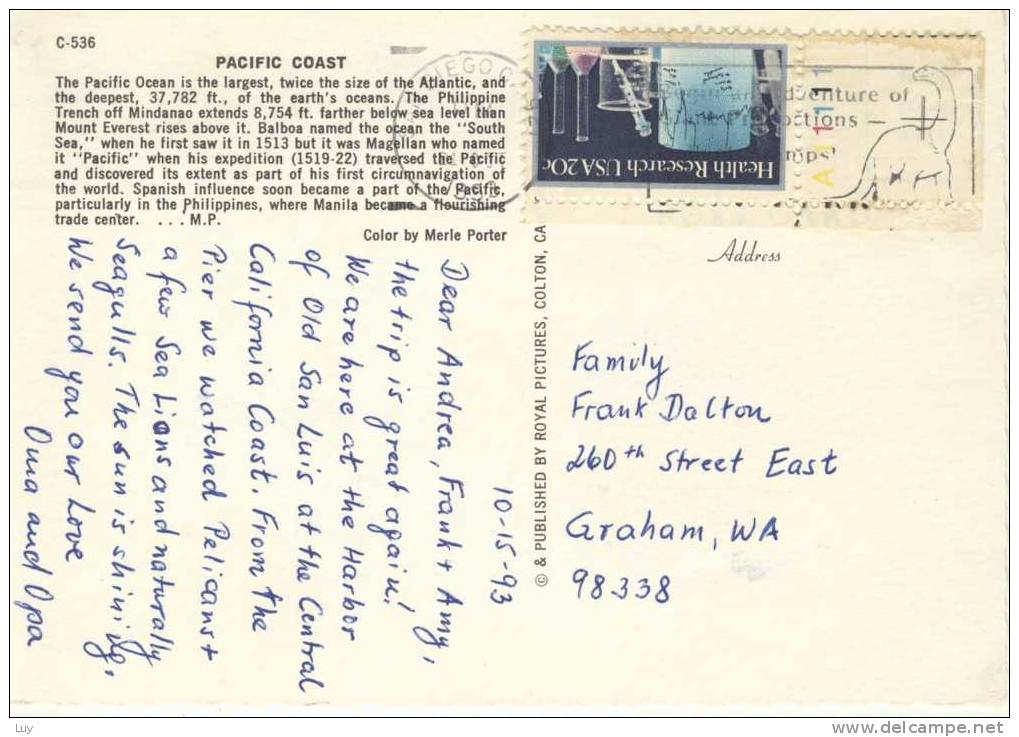 C-536
PACIFIC COAST
The Pacific Ocean is the largest, twice the size of the Atlantic, and
the deepest, 37,782 ft., of the earth's oceans. The Philippine
Trench off Mindanao extends 8,754 ft. farther below sea level than
Mount Everest rises above it. Balboa named the ocean the "South
Sea," when he first saw it in 1513 but it was Magellan who named
it "Pacific" when his expedition (1519-22) traversed the Pacific
and discovered its extent as part of his first circumnavigation of
the world. Spanish influence soon became a part of the Pacific,
particularly in the Philippines, where Manila became a flourishing
trade center. . . . M.P.
Color by Merle Porter
10-15-93
Dear Andrea, Frank + Amy,
the trip is great again!
We are here at the Harbor
of Old San Luis at the Central
California Coast. From the
Pier we watched Pelicans +
a few Sea Lions and naturally
Seagulls. The sun is shining.
We send you our Love
Oma and Opa
© & PUBLISHED BY ROYAL PICTURES, COLTON, CA
Health Research USA 20c
A11111
venture of
Address
Family
Frank Dalton
260th Street East
Graham, WA
98338
Luy
www.delcampe.net